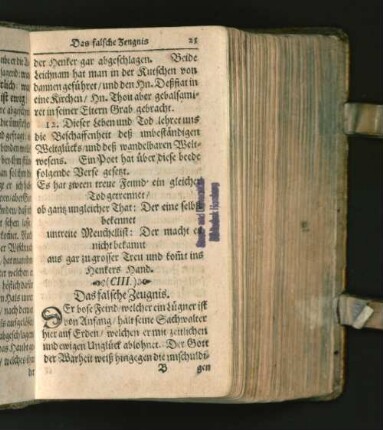 Das falsche Zeugnis 21
der Hencker gar abgeschlagen. Beide
Leichnam hat man in der Kutschen von
dannen geführet / und den Hn. Deßfiat in
eine Kirchen / Hn. Thou aber gebalsami-
ret in seiner Eltern Grab gebracht.
12. Dieser Leben und Tod lehret uns
die Beschaffenheit deß unbeständigen
Weltglücks / und deß wandelbaren Welt-
wesens. Ein Poet hat über diese beede
folgende Verse gesetzt.
Es hat zween treue Feind ein gleicher
Tod getrennet /
ob gantz ungleicher That: Der eine selbst
bekennet
untreue Meuchellist: Der macht es
nicht bekannt
aus gar zu grosser Treu und kom̃t ins
Henkers Hand.
(CIII.)
Das falsche Zeugnis.
DEr böse Feind / welcher ein Lügner ist
von Anfang / hält seine Sachwalter
hier auf Erden / welchen er mit zeitlichen
und ewigen Unglück ablohnet. Der Gott
der Warheit weiß hingegen die unschuldi-
B gen